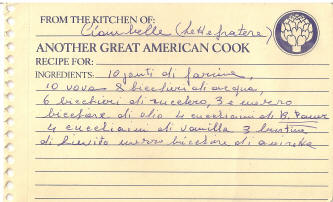 FROM THE KITCHEN OF:
Ciambelle (Lette fratere)
ANOTHER GREAT AMERICAN COOK
RECIPE FOR:
INGREDIENTS: 10 punti di farina,
10 uova 8 bicchieri di acqua,
6 bicchieri di zucchero, 3 e mezzo
bicchere di olio 4 cucchiaini di B. Pauer
4 cucchiaini di vaniglia 3 bustine
di lievito mezzo bicchere di